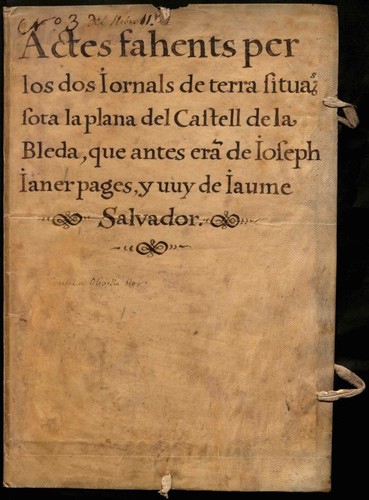 Nº 3
11.
Actes fahents per
los dos Iornals de terra ſitua.s
ſota la plana del Caſtell de la
Bleda, que antes erã de Ioſeph
Ianer pages, y uuy de Iaume
Salvador.